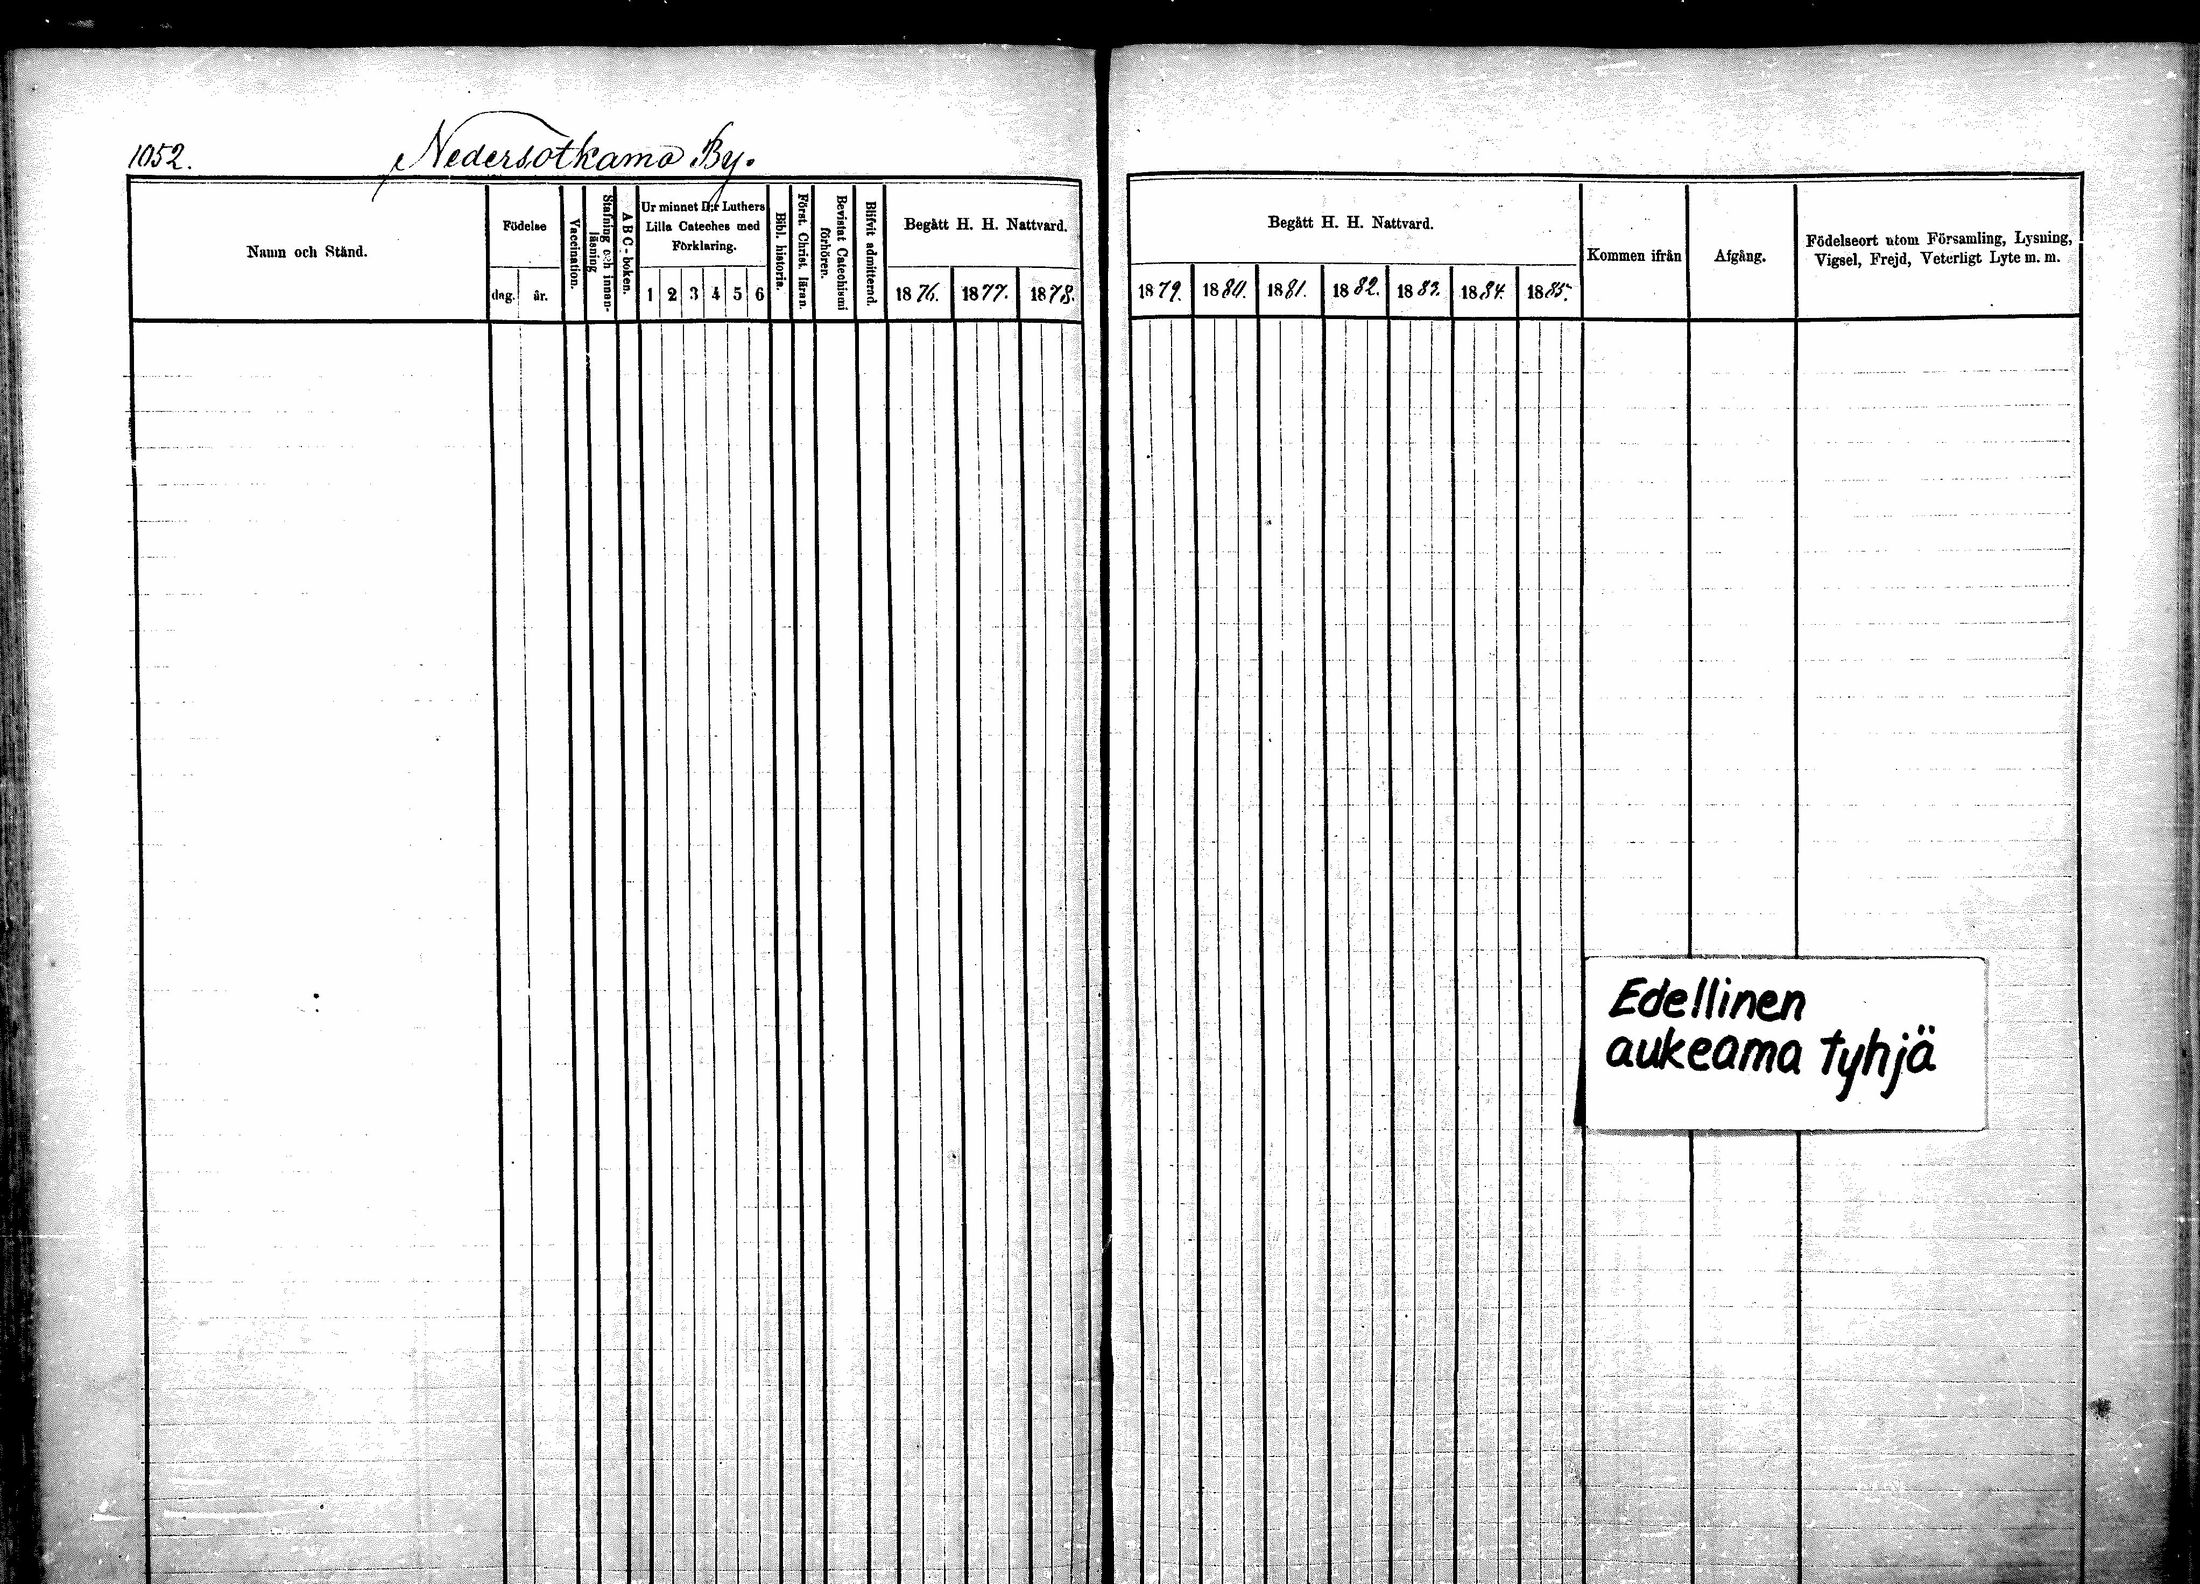 1052. Nedersotkamo By.
Namn och Stånd.
Födelse
dag. år.
Vaccination.
Stafning och innan-
läsning
ABC-boken.
Ur minnet D:r Luthers
Lilla Cateches med
Förklaring.
1 2 3 4 5 6
Bibl. historia.
Först. Christ. läran.
Bevistat Catechismi
förhören.
Blifvit admitterad.
Begått H. H. Nattvard.
1876. 1877. 1878.
Begått H. H. Nattvard.
1879. 1880. 1881. 1882. 1883. 1884. 1885.
Kommen ifrån
Afgång.
Födelseort utom Församling, Lysning,
Vigsel, Frejd, Veterligt Lyte m. m.
Edellinen
aukeama tyhjä